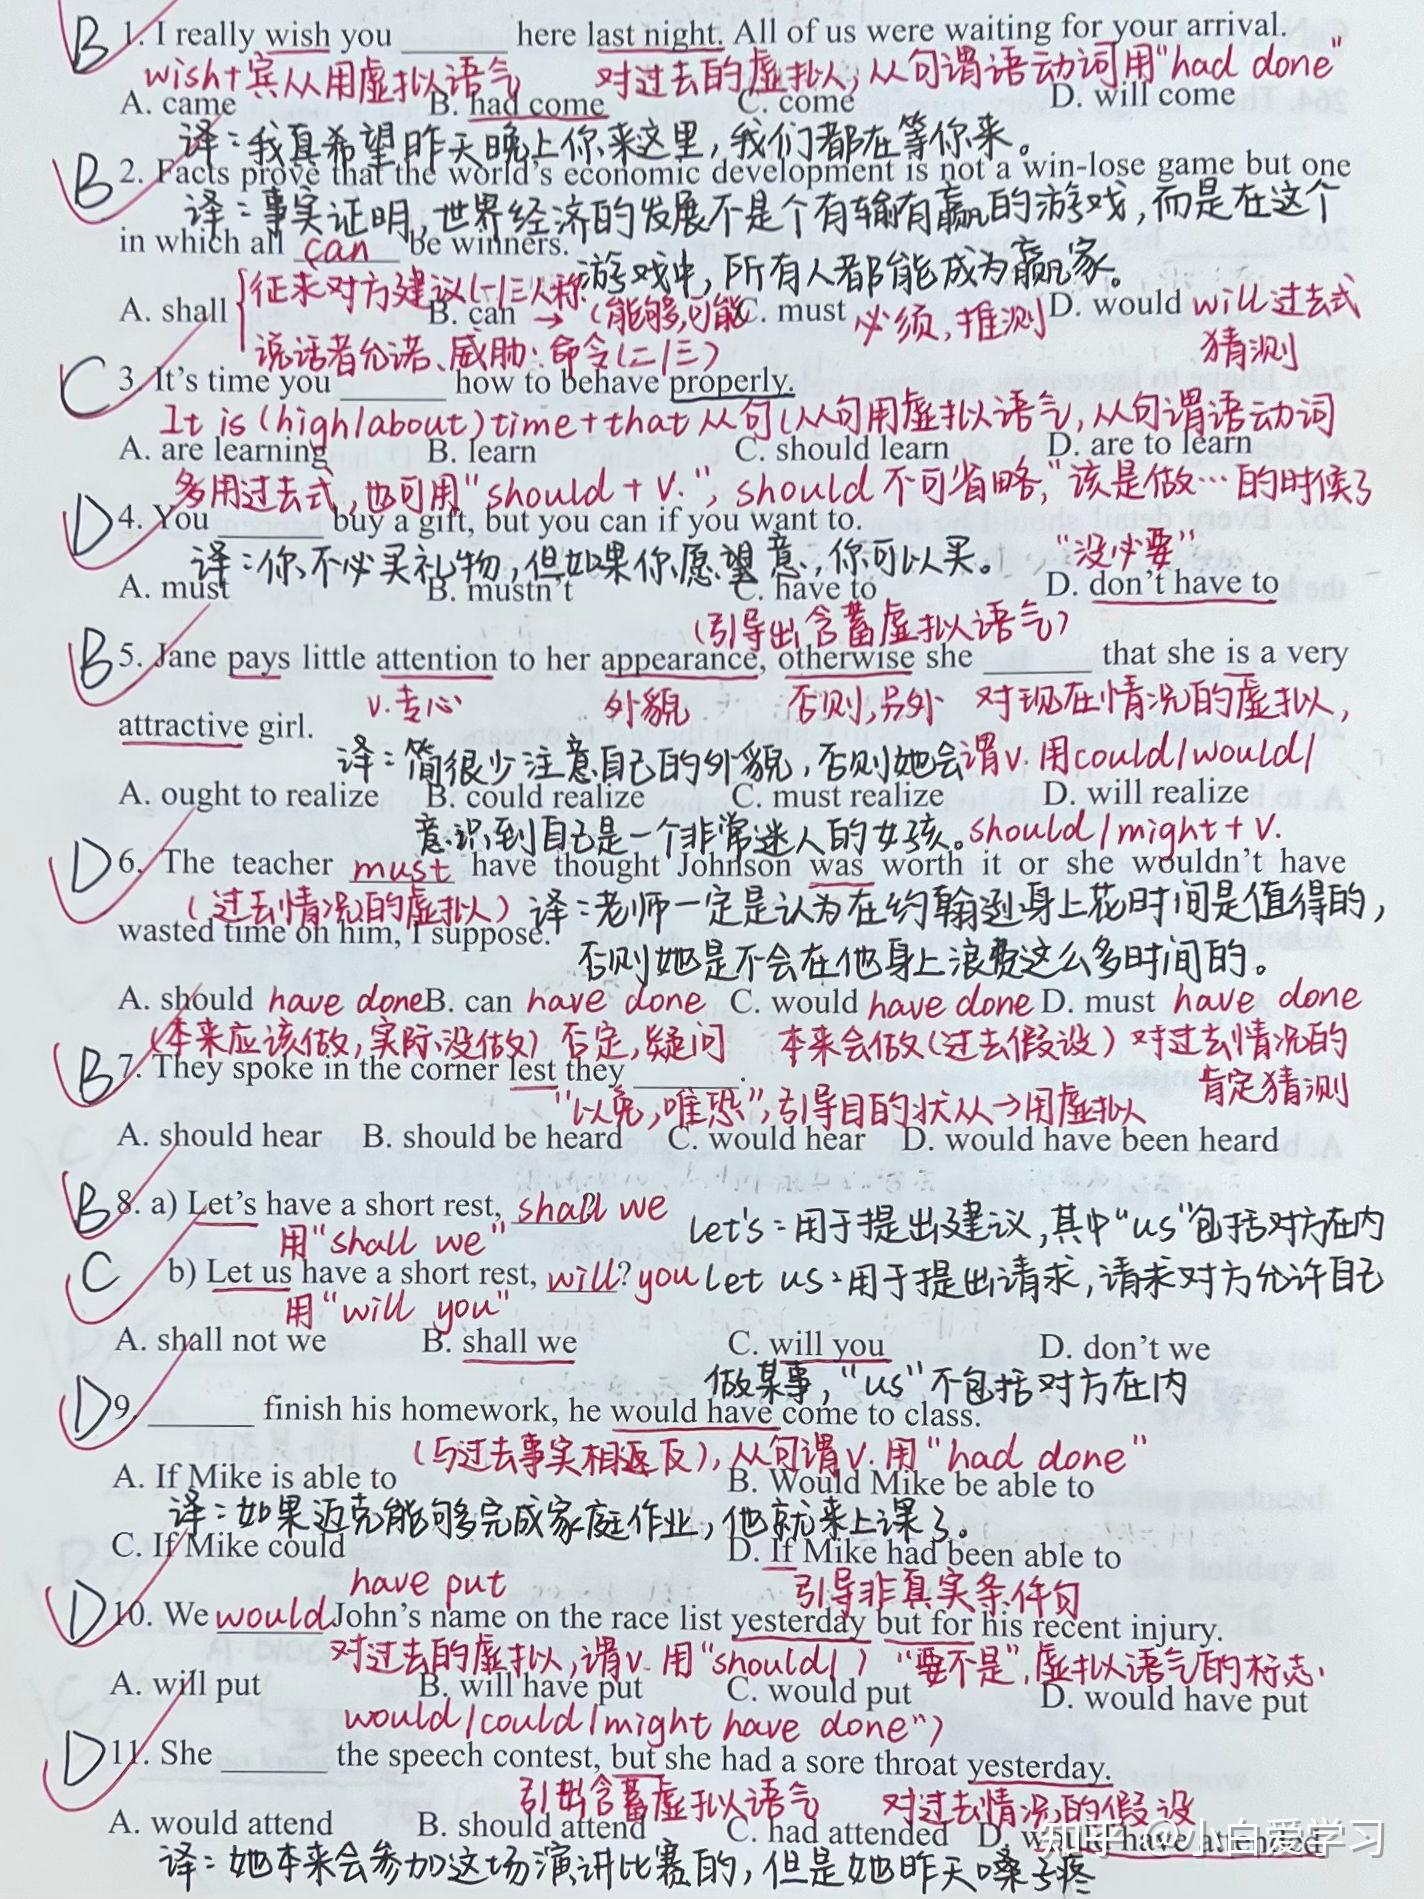 B 1. I really wish you ______ here last night. All of us were waiting for your arrival.
wish+宾从用虚拟语气 对过去的虚拟，从句谓语动词用"had done"
A. came B. had come C. come D. will come
译：我真希望昨天晚上你来这里，我们都在等你来。
B 2. Facts prove that the world's economic development is not a win-lose game but one
译：事实证明，世界经济的发展不是个有输有赢的游戏，而是在这个
in which all can be winners.
游戏中，所有人都能成为赢家。
征求对方建议(一/三人称
A. shall B. can →（能够,可能 C. must 必须，推测 D. would will过去式
说话者允诺、威胁：命令(二/三) 猜测
C 3. It's time you ______ how to behave properly.
It is (high/about) time + that 从句(从句用虚拟语气，从句谓语动词
A. are learning B. learn C. should learn D. are to learn
多用过去式，也可用"should + V."，should 不可省略，"该是做…的时候了
D 4. You ______ buy a gift, but you can if you want to.
译：你不必买礼物，但如果你愿意，你可以买。 "没必要"
A. must B. mustn't C. have to D. don't have to
(引导出含蓄虚拟语气)
B 5. Jane pays little attention to her appearance, otherwise she ______ that she is a very
v.专心 外貌 否则，另外 对现在情况的虚拟，
attractive girl.
译：简很少注意自己的外貌，否则她会谓v. 用could/would/
A. ought to realize B. could realize C. must realize D. will realize
意识到自己是一个非常迷人的女孩。should/might + v.
D 6. The teacher must have thought Johnson was worth it or she wouldn't have
(过去情况的虚拟) 译：老师一定是认为在约翰逊身上花时间是值得的，
wasted time on him, I suppose.
否则她是不会在他身上浪费这么多时间的。
A. should have done B. can have done C. would have done D. must have done
(本来应该做,实际没做) 否定,疑问 本来会做(过去假设) 对过去情况的
B 7. They spoke in the corner lest they ______.
肯定猜测
"以免，唯恐"，引导目的状从→用虚拟
A. should hear B. should be heard C. would hear D. would have been heard
B 8. a) Let's have a short rest, shall we
用"shall we" let's：用于提出建议，其中"us"包括对方在内
C b) Let us have a short rest, will? you let us：用于提出请求，请求对方允许自己
用"will you"
A. shall not we B. shall we C. will you D. don't we
做某事，"us"不包括对方在内
D 9. ______ finish his homework, he would have come to class.
(与过去事实相反)，从句谓v. 用"had done"
A. If Mike is able to B. Would Mike be able to
译：如果迈克能够完成家庭作业，他就来上课了。
C. If Mike could D. If Mike had been able to
have put 引导非真实条件句
D 10. We would John's name on the race list yesterday but for his recent injury.
对过去的虚拟，谓v. 用"should/ ) "要不是"，虚拟语气的标志.
A. will put B. will have put C. would put D. would have put
would/could/might have done")
D 11. She ______ the speech contest, but she had a sore throat yesterday.
引出含蓄虚拟语气 对过去情况的假设
A. would attend B. should attend C. had attended D. would have attended
知乎 @小白爱学习
译：她本来会参加这场演讲比赛的，但是她昨天嗓子疼